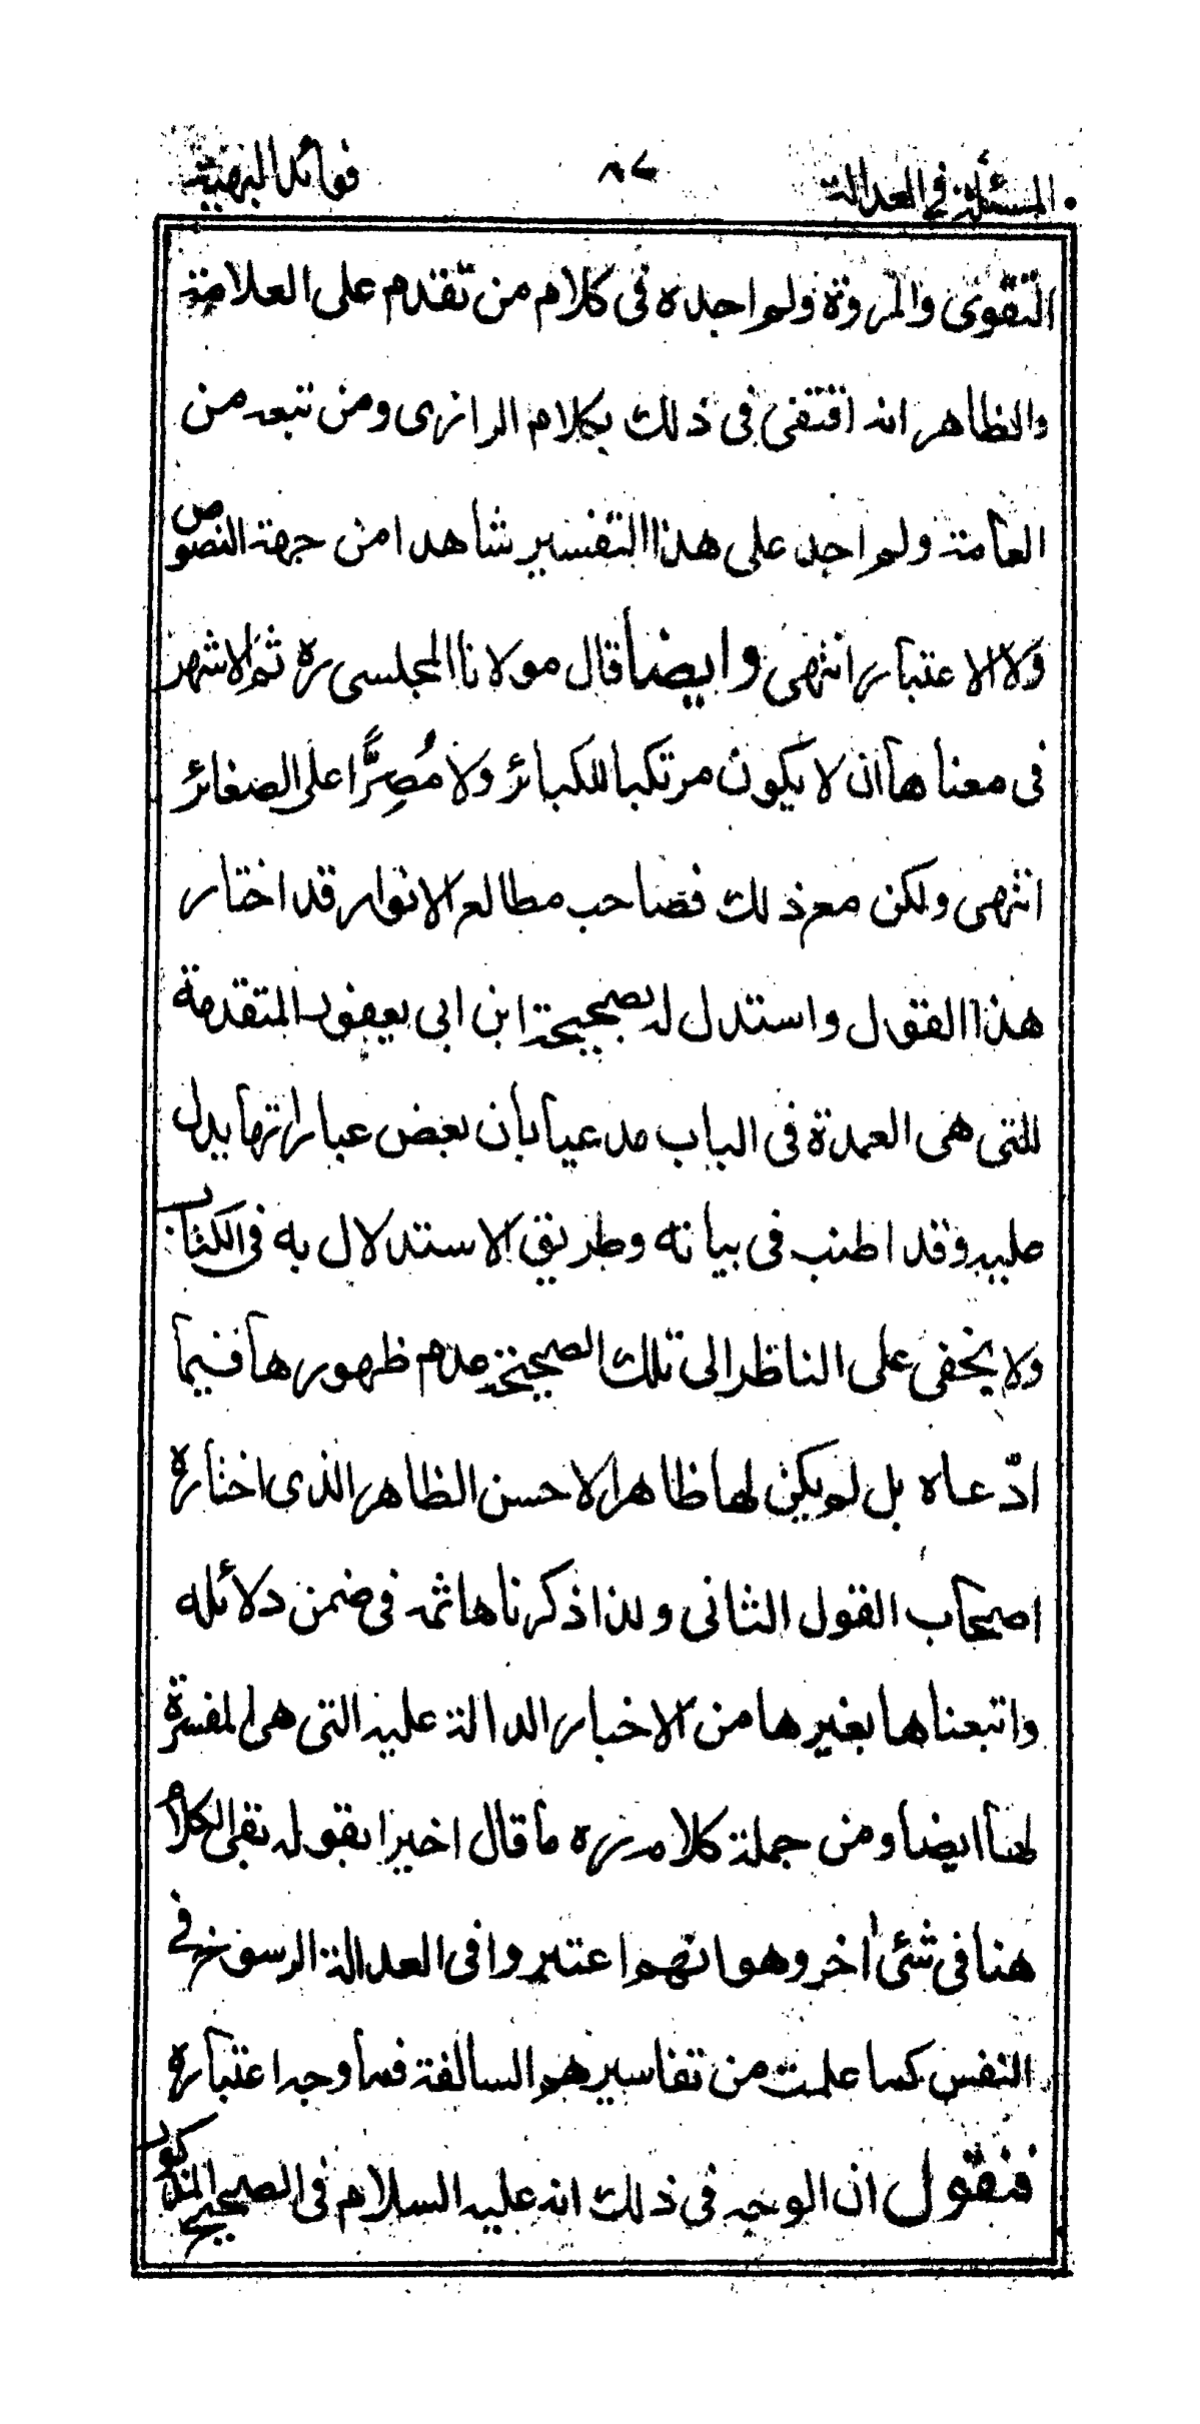 المسئلة في العدالة ٨٧ فوائد البهية
التقوى والمروة ولم اجده في كلام من تقدم على العلامة
والظاهر انه اقتفى في ذلك بكلام الرازى ومن تبعه من
العامة ولم اجد على هذا التفسير شاهدا من جهة النصوص
ولا الاعتبار انتهى وايضا قال مولانا المجلسى ره ثم الاشهر
في معناها ان لا يكون مرتكبا للكبائر ولا مُصِرًّا على الصغائر
انتهى ولكن مع ذلك فصاحب مطالع الانوار قد اختار
هذا القول واستدل له بصحيحة ابن ابى يعفور المتقدمة
التى هى العمدة في الباب مدعيا بأن بعض عباراتها يدل
عليه وقد اطنب في بيانه وطريق الاستدلال به في الكتاب
ولا يخفى على الناظر الى تلك الصحيحة عدم ظهورها فيما
ادّعاه بل لم يكن لها ظاهر الا حسن الظاهر الذى اختاره
اصحاب القول الثانى ولذا ذكرناها ثمه في ضمن دلائله
واتبعناها بغيرها من الاخبار الدالة عليه التى هى المفسرة
لها ايضا ومن جملة كلامه ره ما قال اخيرا بقوله بقى الكلام
هنا في شئ اخر وهو انهم اعتبروا في العدالة الرسوخ في
النفس كما علمت من تفاسيرهم السالفة فما وجه اعتباره
فنقول ان الوجه في ذلك انه عليه السلام في الصحيح المذكور